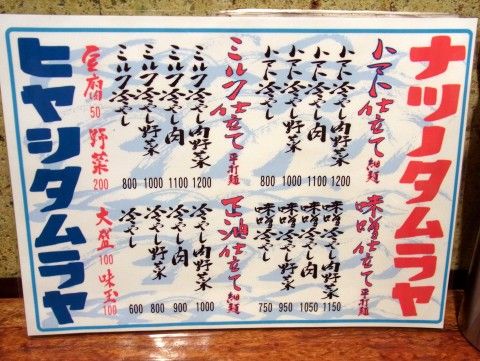 ナツノタムラヤ
トマト仕立て 細麺
トマト冷やし肉野菜 1200
トマト冷やし肉 1100
トマト冷やし野菜 1000
トマト冷やし 800
味噌仕立て 平打麺
味噌冷やし肉野菜 1150
味噌冷やし肉 1050
味噌冷やし野菜 950
味噌冷やし 750
ミルク仕立て 平打麺
ミルク冷やし肉野菜 1200
ミルク冷やし肉 1100
ミルク冷やし野菜 1000
ミルク冷やし 800
正油仕立て 細麺
冷やし肉野菜 1000
冷やし肉 900
冷やし野菜 800
冷やし 600
豆腐 50
野菜 200
大盛 100
味玉 100
ヒヤシタムラヤ